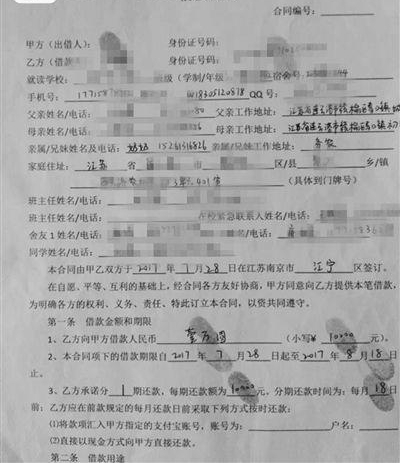 合同编号：
甲方（出借人）： 身份证号码：
乙方（借款 身份证号码：
就读学校： 级（学制/年级 宿舍号
手机号： QQ号：
父亲姓名/电话： 父亲工作地址：
母亲姓名/电话： 母亲工作地址：
亲属/兄妹姓名及电话： 亲属/兄妹工作地址： 务农
家庭住址： 江苏 省 市 区/县 乡/镇
（具体到门牌号）
班主任姓名/电话：
班主任姓名/电话： 在校紧急联系人姓名/电话：
舍友1姓名/电话： 姓名/电话：
同学姓名/电话：
本合同由甲乙双方于 2017 年 7 月 28 日在江苏南京市 江宁 区签订。
在自愿、平等、互利的基础上，经合同各方友好协商，甲方同意向乙方提供本笔借款，
为明确各方的权利、义务、责任，特此订立本合同，以资共同遵守。
第一条 借款金额和期限
1、乙方向甲方借款人民币 壹万圆 （小写¥ 10000 元）。
2、本合同项下的借款期限自 2017 年 7 月 28 日起至 2017 年 8 月 18 日
止。
3、乙方承诺分 1 期还款，每期还款额为 10000 元，分期还款时间为：每月 18 日
前；乙方应在前款规定的每月还款日前采取下列方式按时还款：
(1)将款项汇入甲方指定的支付宝账号，账号为： 户名：
(2)直接以现金方式向甲方直接还款。
第二条 借款用途